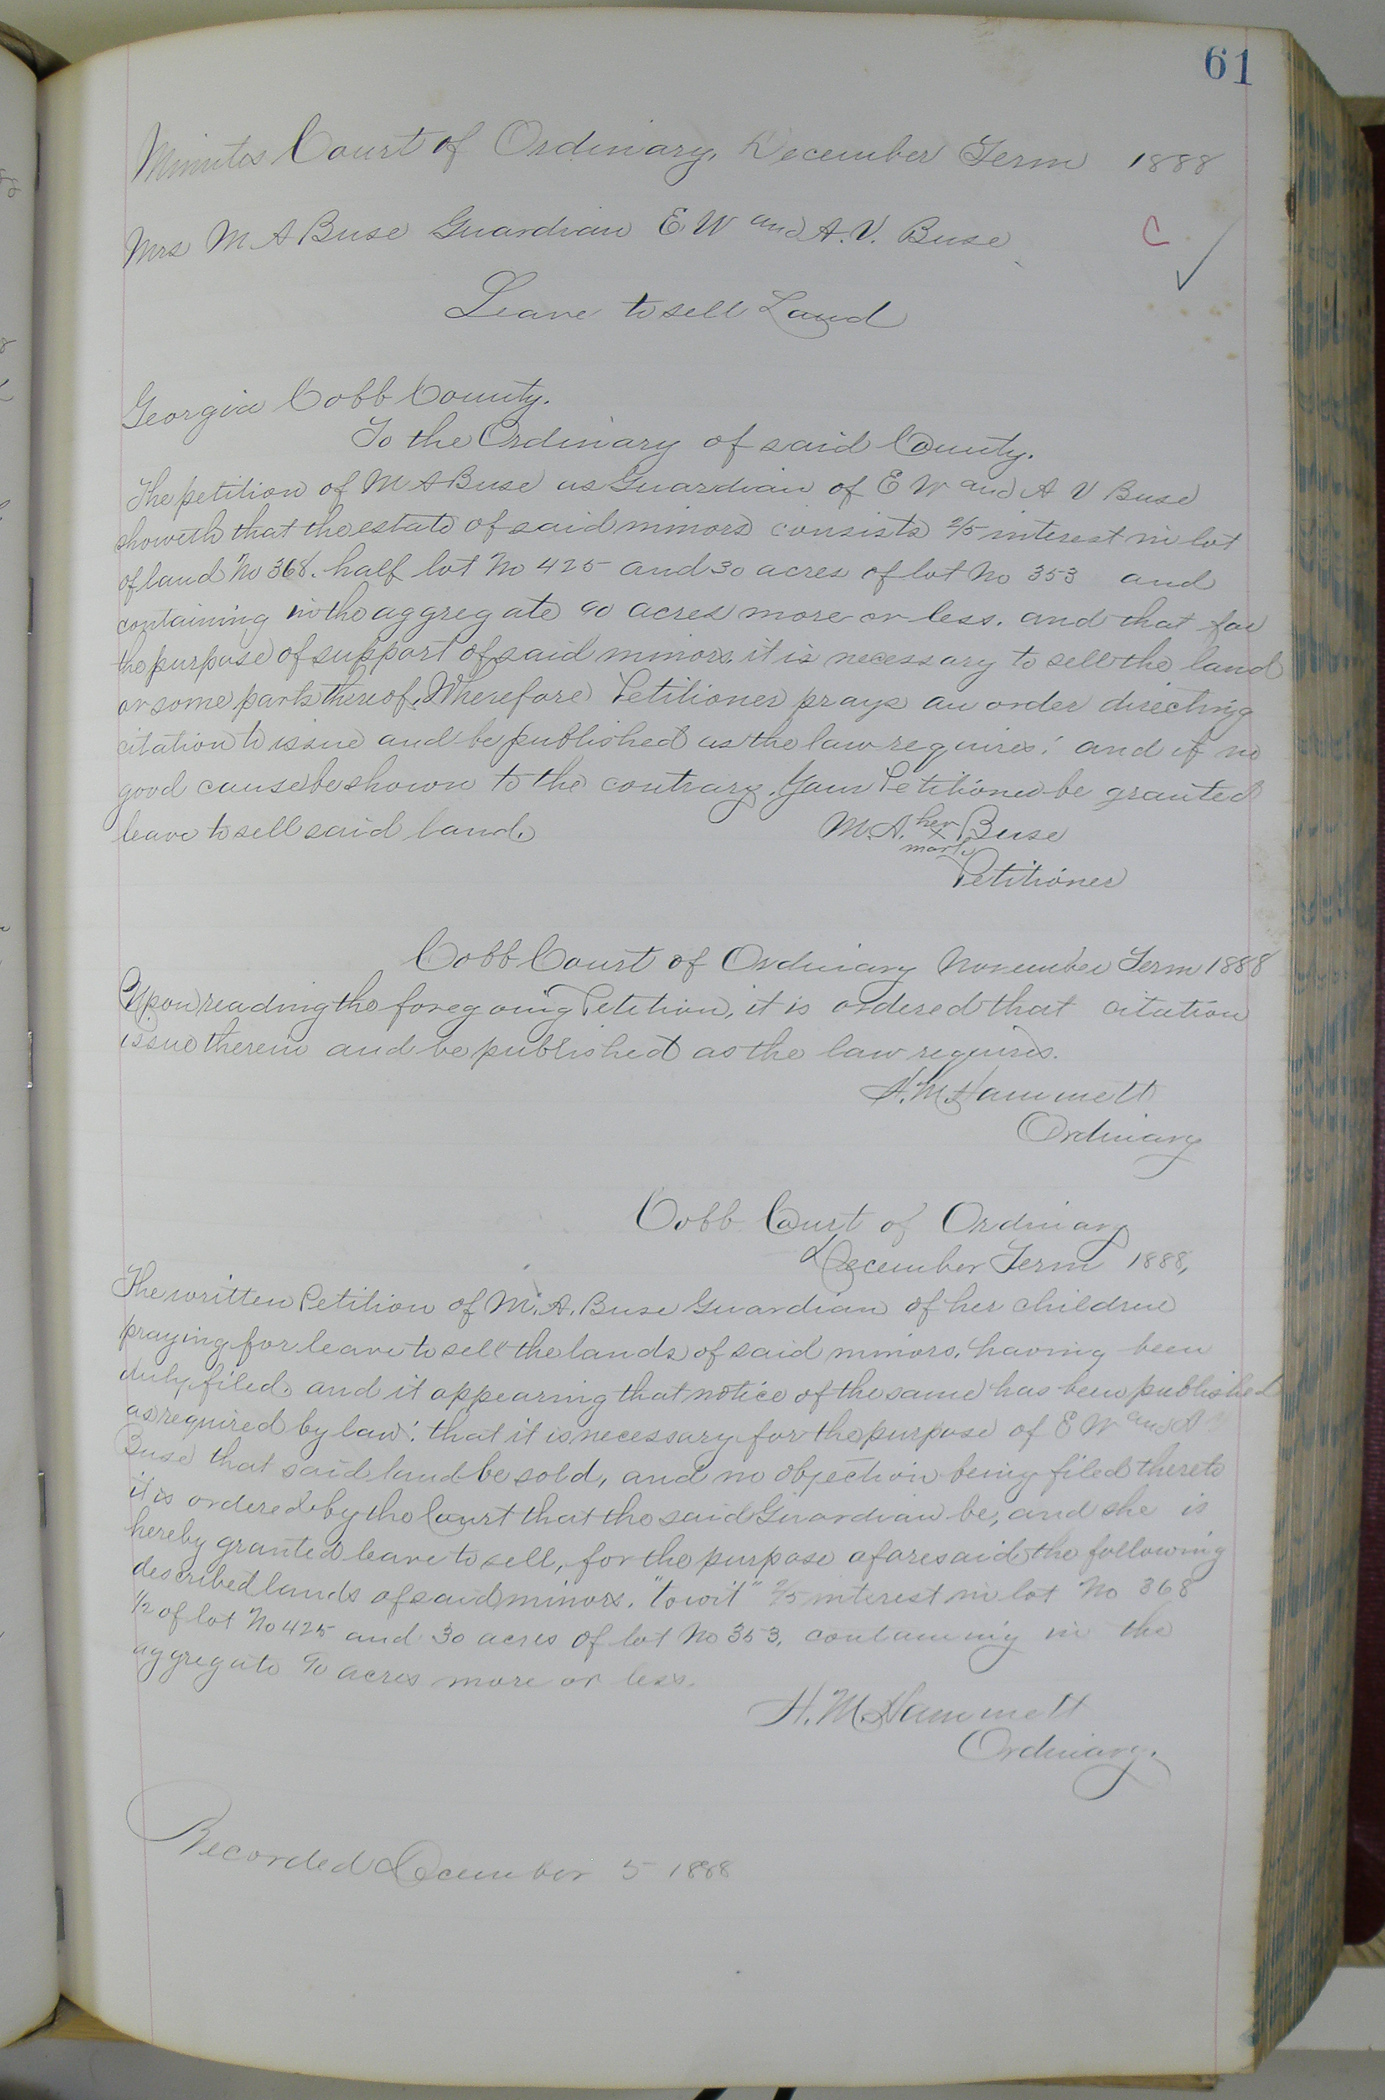 61
Minutes Court of Ordinary, December Term 1888
Mrs M A Buse Guardian E W and A. V. Buse
C
Leave to sell Land
Georgia Cobb County.
To the Ordinary of said County.
The petition of M A Buse as Guardian of E W and A V Buse
showeth that the estate of said minors consists 2/5 interest in lot
of land No 368. half lot No 425 and 30 acres of lot No 353 and
containing in the aggregate 90 acres more or less. and that for
the purpose of support of said minors it is necessary to sell the land
or some part thereof. Wherefore Petitioner prays an order directing
citation to issue and be published as the law requires; and if no
good cause be shown to the contrary. Your Petitioner be granted
leave to sell said land.
M. A. her x mark Buse
Petitioner
Cobb Court of Ordinary November Term 1888
Upon reading the foregoing Petition, it is ordered that citation
issue therein and be published as the law requires.
H. M. Hammett
Ordinary
Cobb Court of Ordinary
December Term 1888,
The written Petition of M. A. Buse Guardian of her children
praying for leave to sell the lands of said minors, having been
duly filed, and it appearing that notice of the same has been published
as required by law; that it is necessary for the purpose of E W and A V
Buse that said land be sold, and no objection being filed thereto
it is ordered by the Court that the said Guardian be, and she is
hereby granted leave to sell, for the purpose aforesaid the following
described lands of said minors. "towit" 2/5 interest in lot No 368
1/2 of lot No 425 and 30 acres of lot No 353, containing in the
aggregate 90 acres more or less.
H. M. Hammett
Ordinary.
Recorded December 5 1888